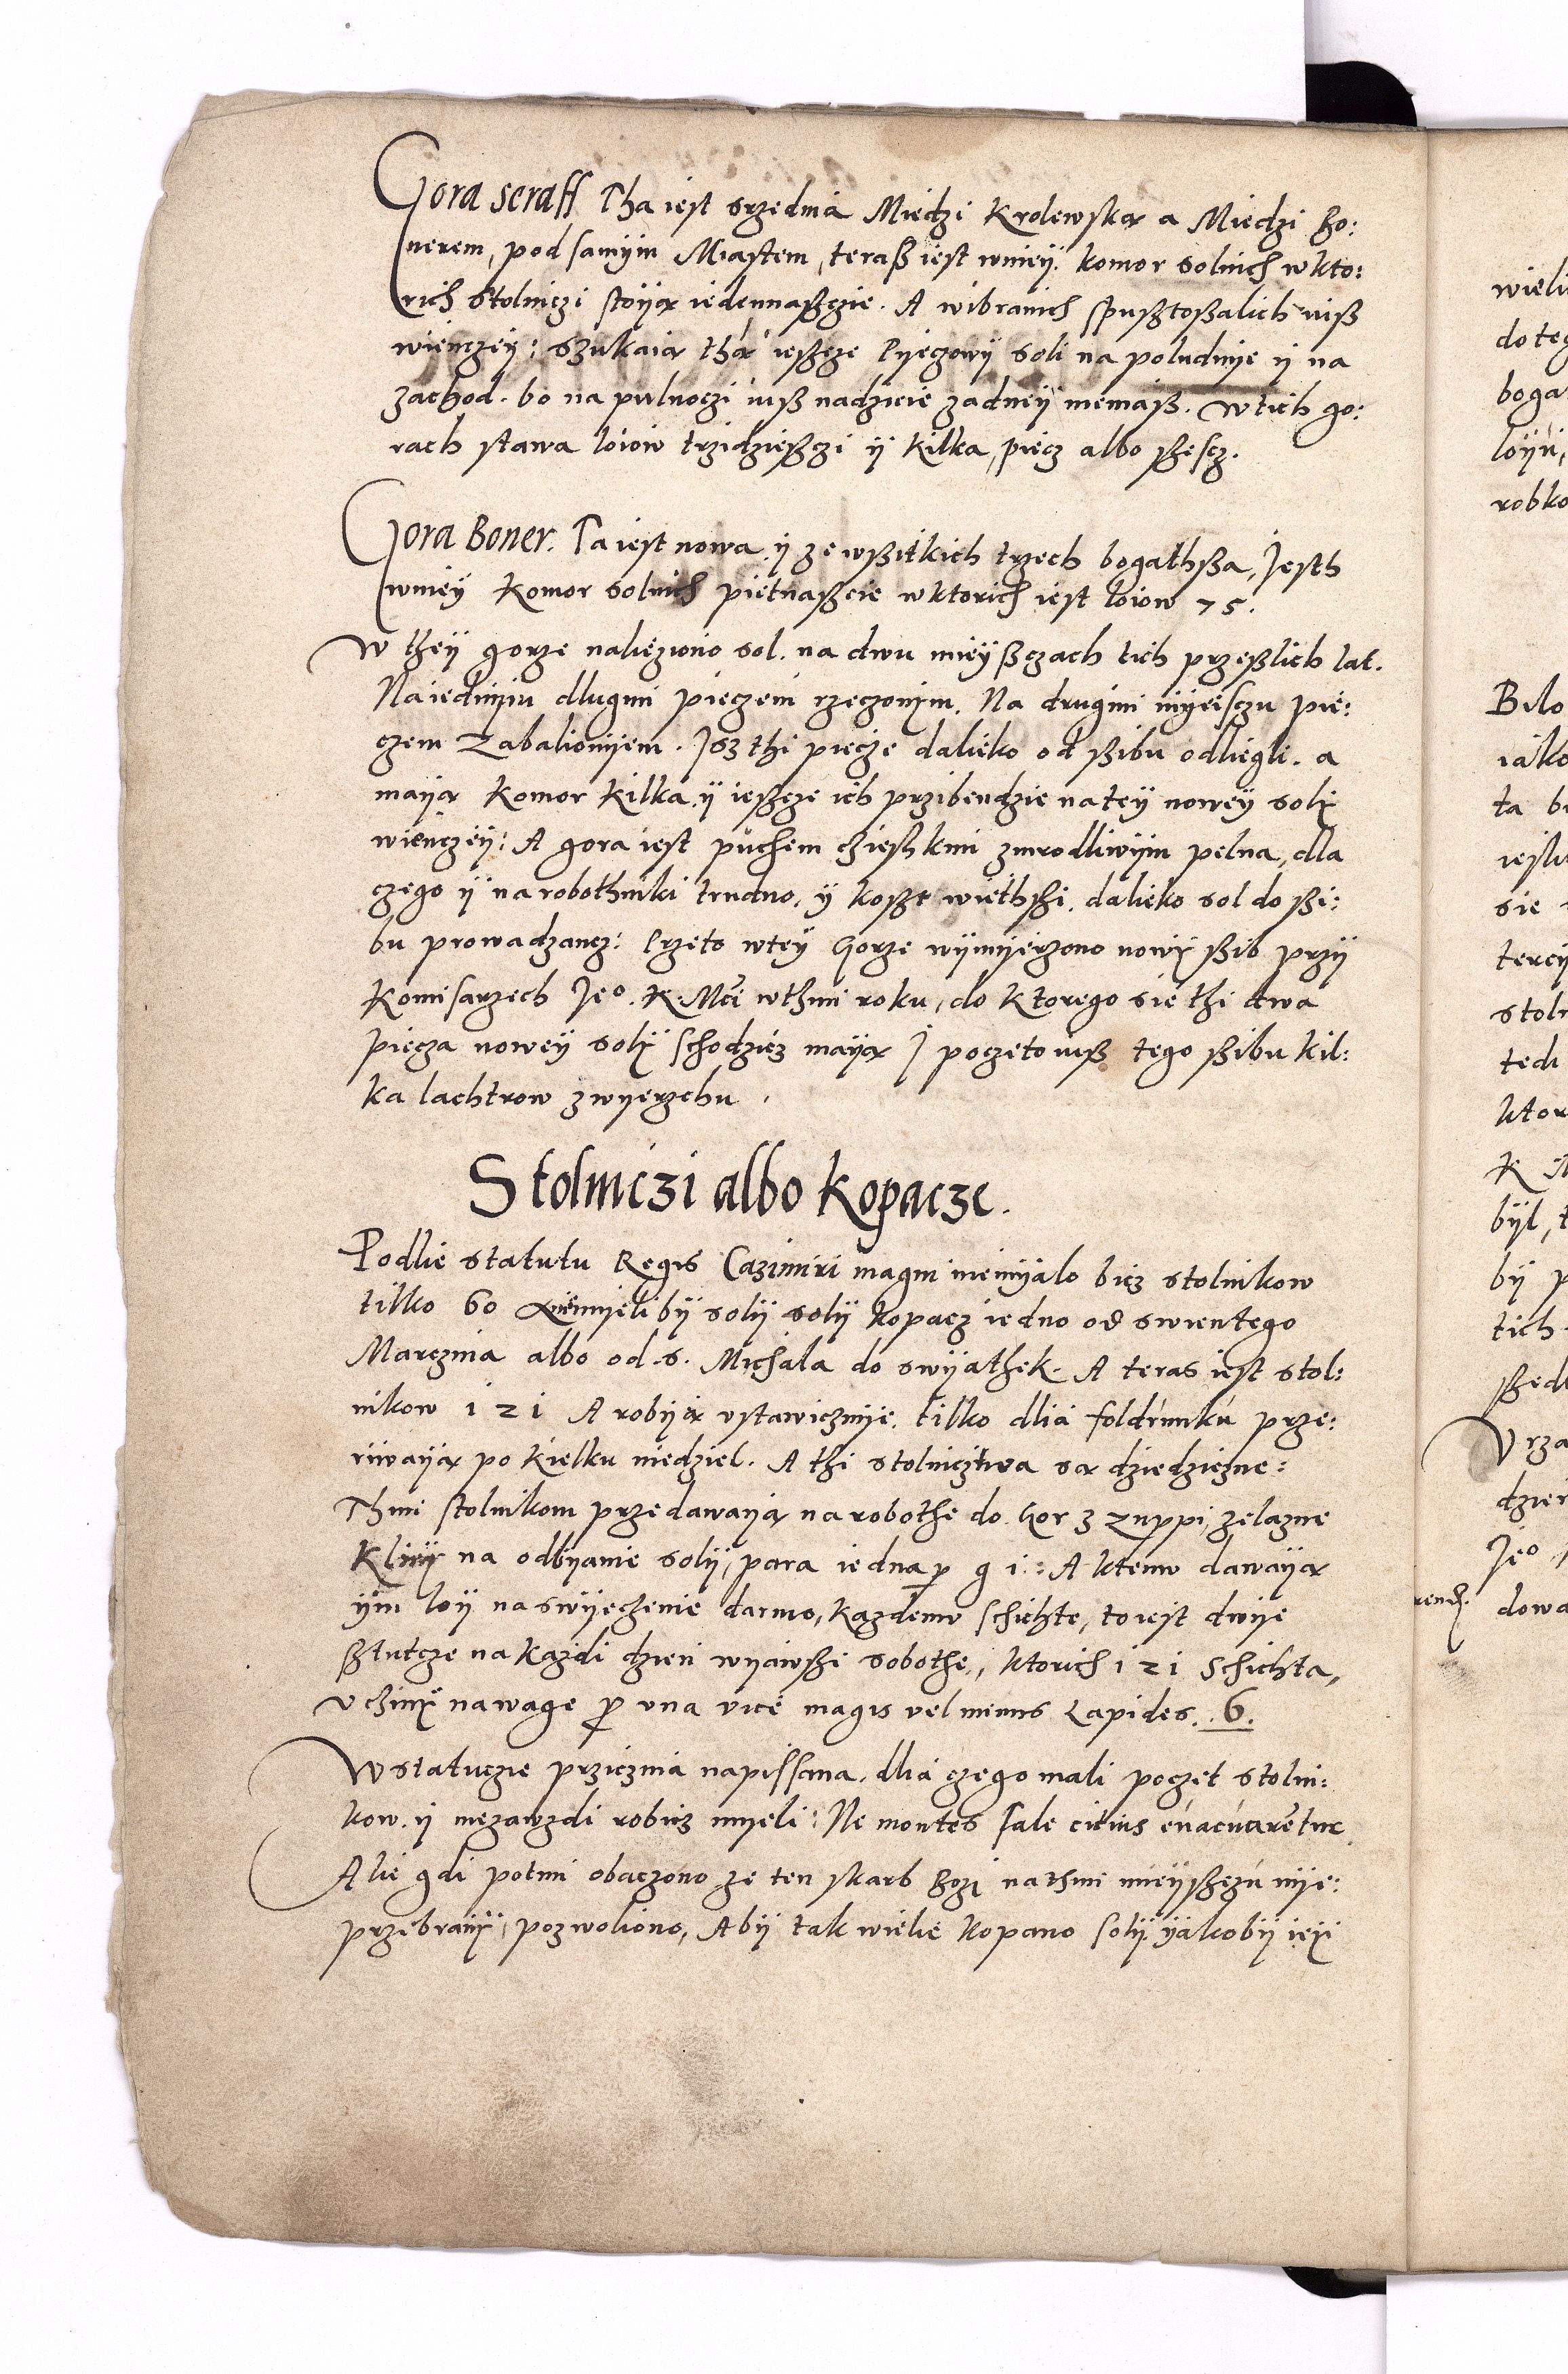 Gora seraff Tha iest srzednia Miedzi Krolewską a Miedzi Bo:
nerem, pod samÿm Miastem, teraß iest wnieÿ. komor solnich wkto:
rich Stolniczi stoÿą iedennaßczie. A wibranich spußtoßalich niß
wienczeÿ: szukaią thą ießcze Pÿeczowÿ soli na poludnÿe ÿ na
zachod. bo na pulnoczi iuß nadzieie zadneÿ niemáß. w tich go:
rach stawa loiow trzidzießczi ÿ kilka, piecz albo ßescz.
Gora Boner. Ta iest nowa ÿ ze wßitkich trzech bogathßa, Jesth
wnieÿ Komor solnich pietnaßcie wktorich iest loiow 75.
W theÿ gorze nalieziono sol. na dwu mieÿßczach tich przeßlich lat.
Na iednÿm dlugim pieczem rzeczonÿm. Na drugim mÿeisczu pie:
czem Zabalionÿem. Jsz thi piecze dalieko od ßibu odliegli. a
maÿą Komor Kilka ÿ ießcze ich przibendzie na teÿ noweÿ solÿ
wienczeÿ: A gora iest puchem czießkim zmrodliwÿm pelna, dla
czego ÿ na robothniki trudno, ÿ koßt wiethßi. dalieko sol do ßi:
bu prowadzancz: Przeto wteÿ Gorze wÿmÿerzono nowÿ ßib przÿ
Komisarzech Jeº. K. Mći wthim roku, do ktorego sie thi dwa
pieca noweÿ solÿ schodzicz maÿą J poczeto iuß tego ßibu kil:
ka lachtrow zwÿerzchu.
Stolniczi albo kopacze.
Podlie statutu Regis Cazimiri magni niemÿalo bicz stolnikow
tilko 60 mÿeli bÿ solÿ solÿ kopacz iedno od swientego
Marczina albo od. s. Michala do swÿathek. A teras iest stol:
nikow 121 A robÿą vstawicznÿe. tilko dlia foldrunku prze:
riwaÿą po kielku niedziel. A thi stolnicztwa są dziedziczne:
Thim stolnikom przedawaÿą na robothe do Gor z Zuppi, zelazne
Klinÿ na odbÿanie solÿ, para iedna ꝑ g 1.: A ktemu dawaÿą
ÿm loÿ na swÿeczenie darmo, Kazdemu schichte, to iest dwÿe
ßtutcze na kazdi dzien wÿawßi sobothe, ktorich 121 Schichta,
vczinÿ na wage ꝑ vna vicē magis vel menus Lapides. 6.
W statuczie prziczina napissana. dlia czego mali poczet stolni:
kow. ÿ niezawzdi robicz mÿeli: Ne montes sale citius euacuarētur
Alie gdi potim obaczono ze ten skarb Bozi na thim mieÿßczu nÿe:
przebranÿ, pozwoliono, Abÿ tak wielie kopano solÿ ÿakobÿ ieÿ